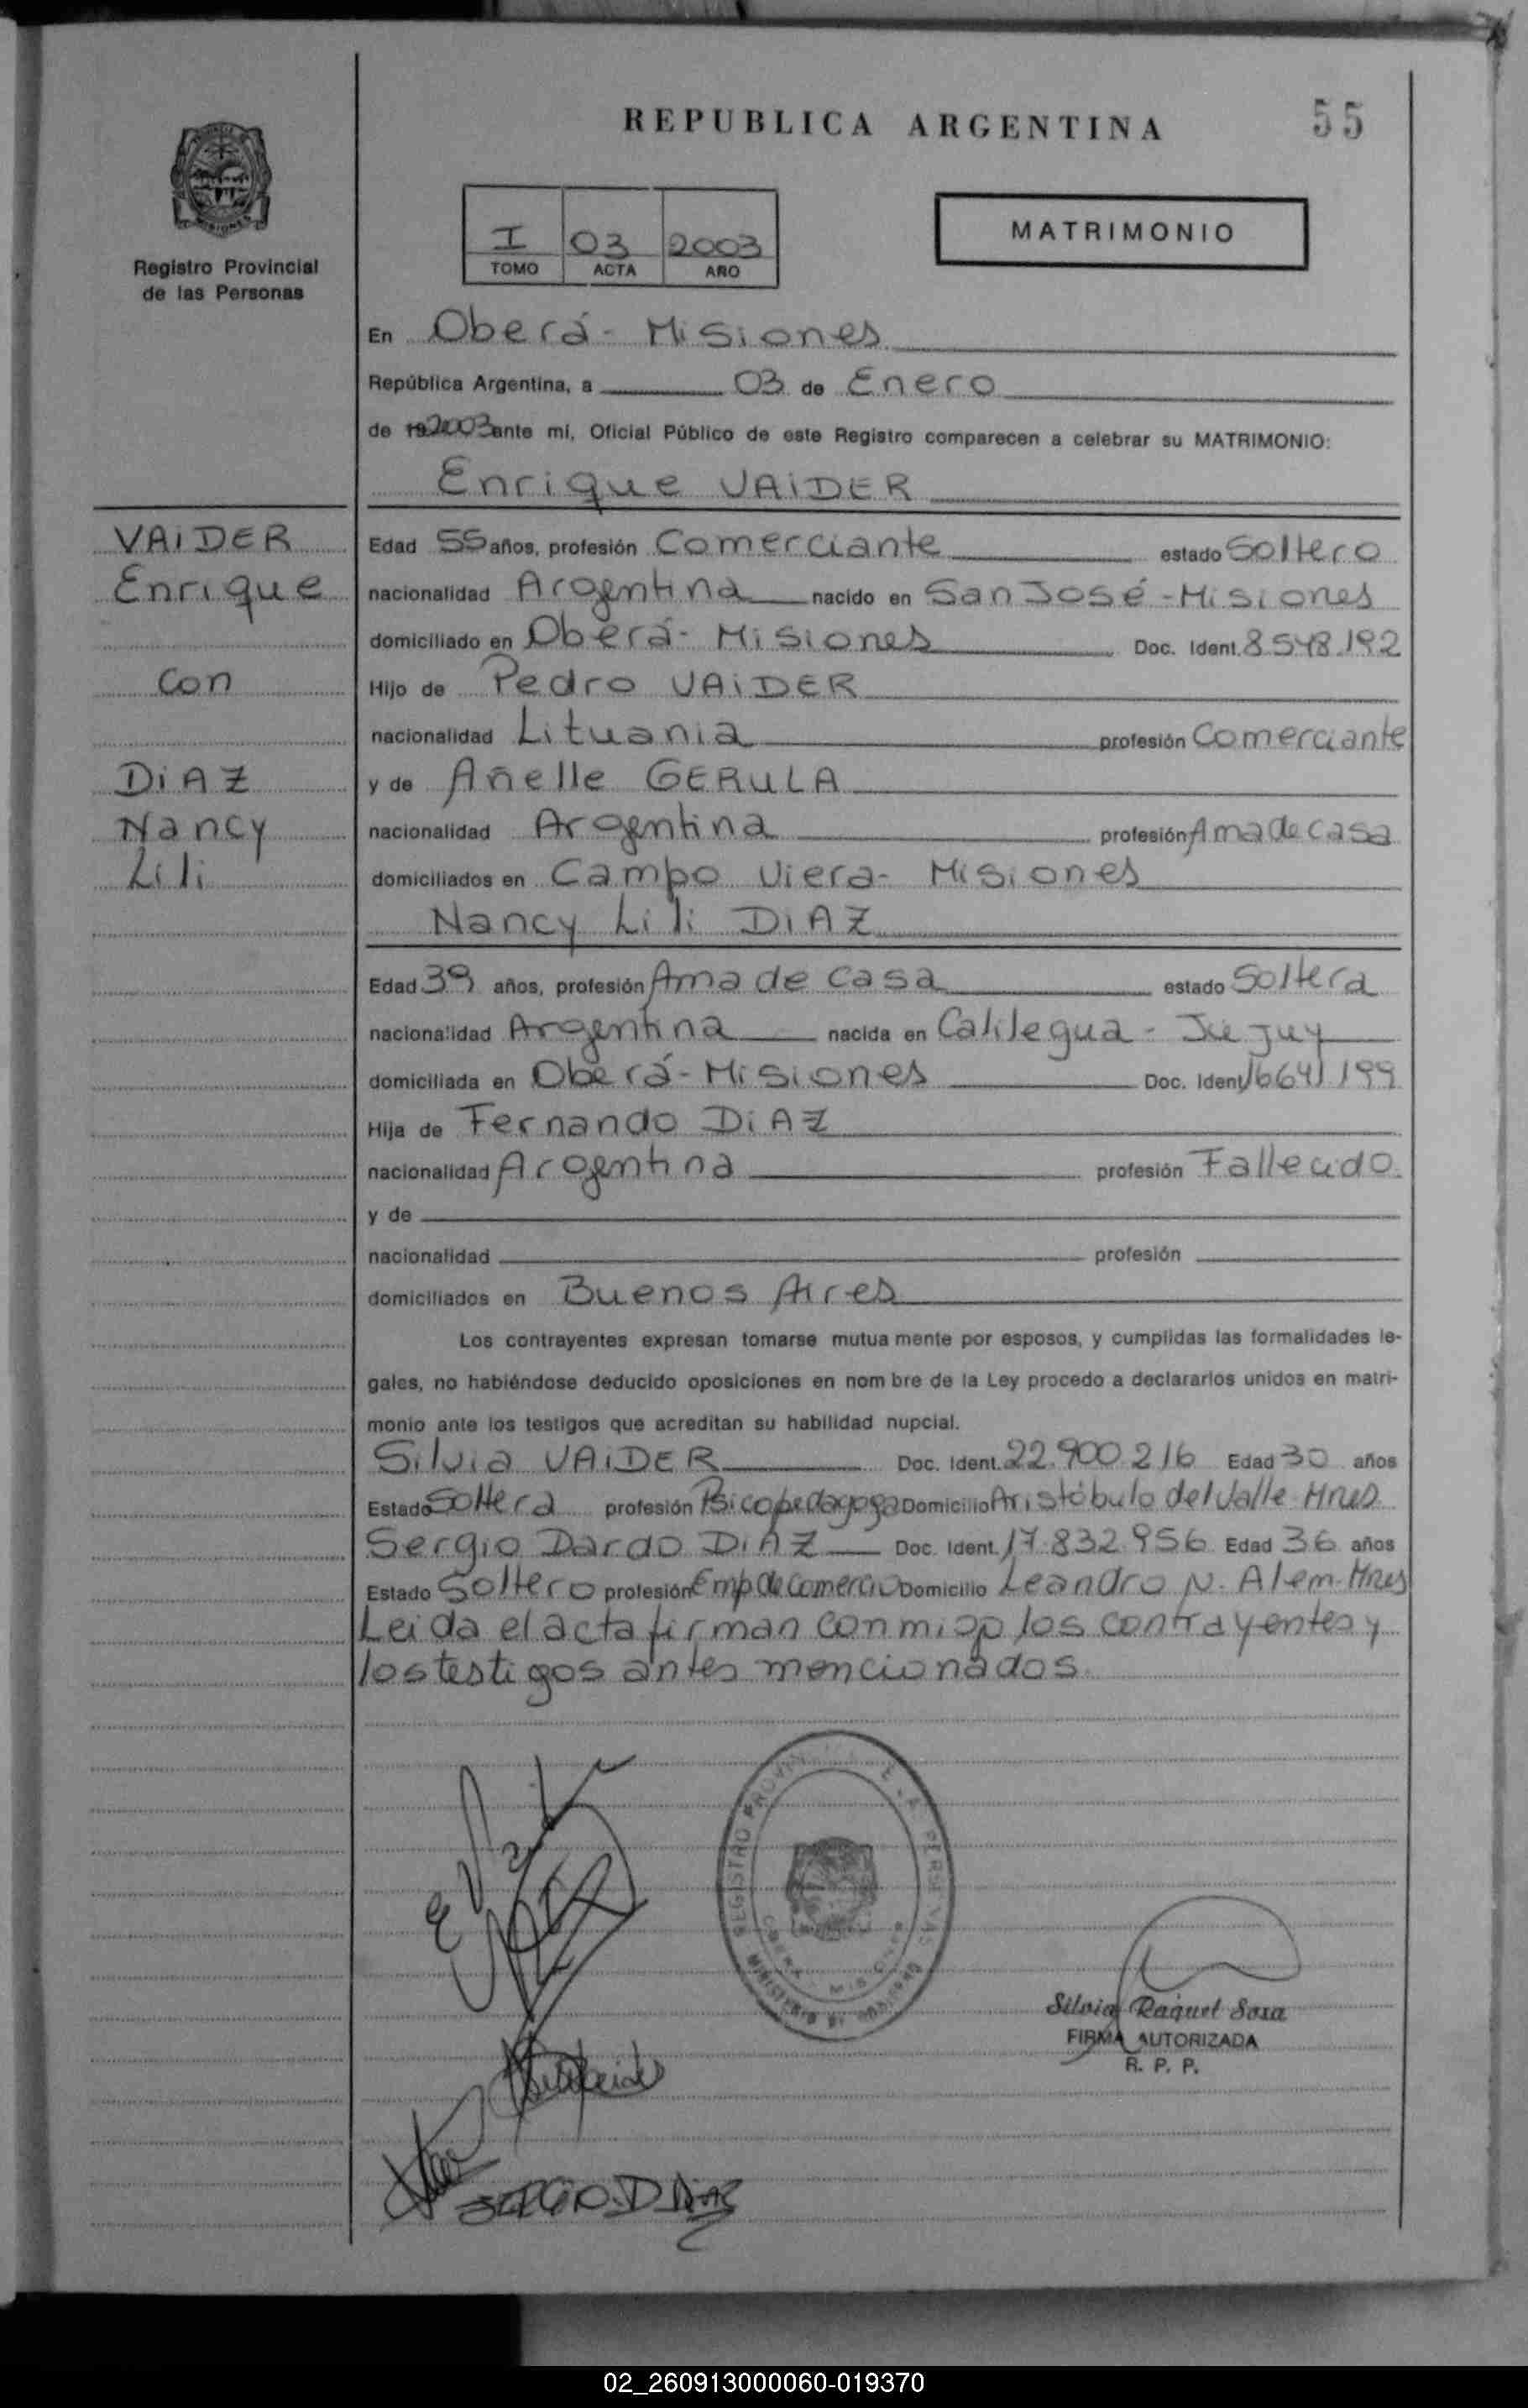 REPUBLICA ARGENTINA
55
Registro Provincial
de las Personas
I 03 2003
TOMO ACTA AÑO
MATRIMONIO
En Oberá - Misiones
República Argentina, a 03 de Enero
de 19 2003 ante mí, Oficial Público de este Registro comparecen a celebrar su MATRIMONIO:
Enrique VAIDER
VAIDER
Enrique
con
DIAZ
Nancy
Lili
Edad 55 años, profesión Comerciante estado Soltero
nacionalidad Argentina nacido en San José - Misiones
domiciliado en Oberá - Misiones Doc. Ident. 8.548.192
Hijo de Pedro VAIDER
nacionalidad Lituania profesión Comerciante
y de Añelle GERULA
nacionalidad Argentina profesión Ama de casa
domiciliados en Campo Viera - Misiones
Nancy Lili DIAZ
Edad 39 años, profesión Ama de casa estado Soltera
nacionalidad Argentina nacida en Calilegua - Jujuy
domiciliada en Oberá - Misiones Doc. Ident. 16641199
Hija de Fernando DIAZ
nacionalidad Argentina profesión Fallecido
y de
nacionalidad profesión
domiciliados en Buenos Aires
Los contrayentes expresan tomarse mutua mente por esposos, y cumplidas las formalidades le-
gales, no habiéndose deducido oposiciones en nom bre de la Ley procedo a declararlos unidos en matri-
monio ante los testigos que acreditan su habilidad nupcial.
Silvia VAIDER Doc. Ident. 22.900.216 Edad 30 años
Estado Soltera profesión Psicopedagoga Domicilio Aristóbulo del Valle Mnes
Sergio Dardo DIAZ Doc. Ident. 17.832.956 Edad 36 años
Estado Soltero profesión Emp de Comercio Domicilio Leandro N. Alem - Mnes
Leida el acta firman conmigo los contrayentes y
los testigos antes mencionados.
REGISTRO
Silvia Raquel Sosa
FIRMA AUTORIZADA
R. P. P.
SERGIO D DIAZ
02_260913000060-019370